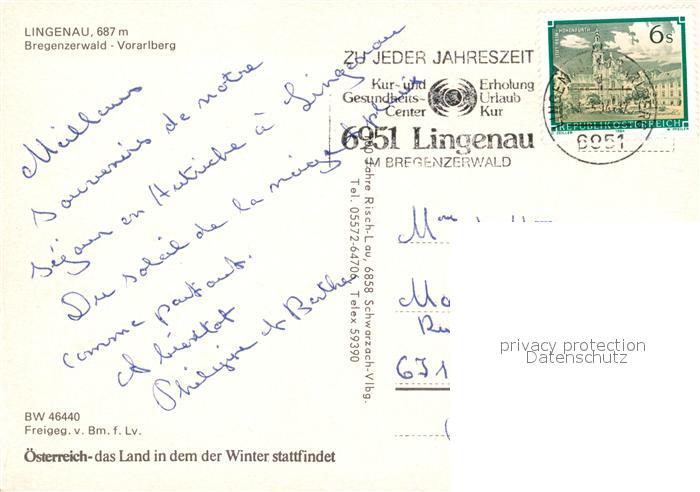 LINGENAU, 687 m
Bregenzerwald - Vorarlberg
ZU JEDER JAHRESZEIT
Kur- und
Gesundheits-
Center
Erholung
Urlaub
Kur
6951 Lingenau
IM BREGENZERWALD
6s
REPUBLIK ÖSTERREICH
6951
Meilleurs
souvenirs de notre
séjour en Autriche à Lingenau
Du soleil de la neige
comme partout.
A bientôt
Philippe et Berthe
Risch-Lau, 6858 Schwarzach-Vlbg.
Tel. 05572-64706, Telex 59390
M
671
privacy protection
Datenschutz
BW 46440
Freigeg. v. Bm. f. Lv.
Österreich - das Land in dem der Winter stattfindet